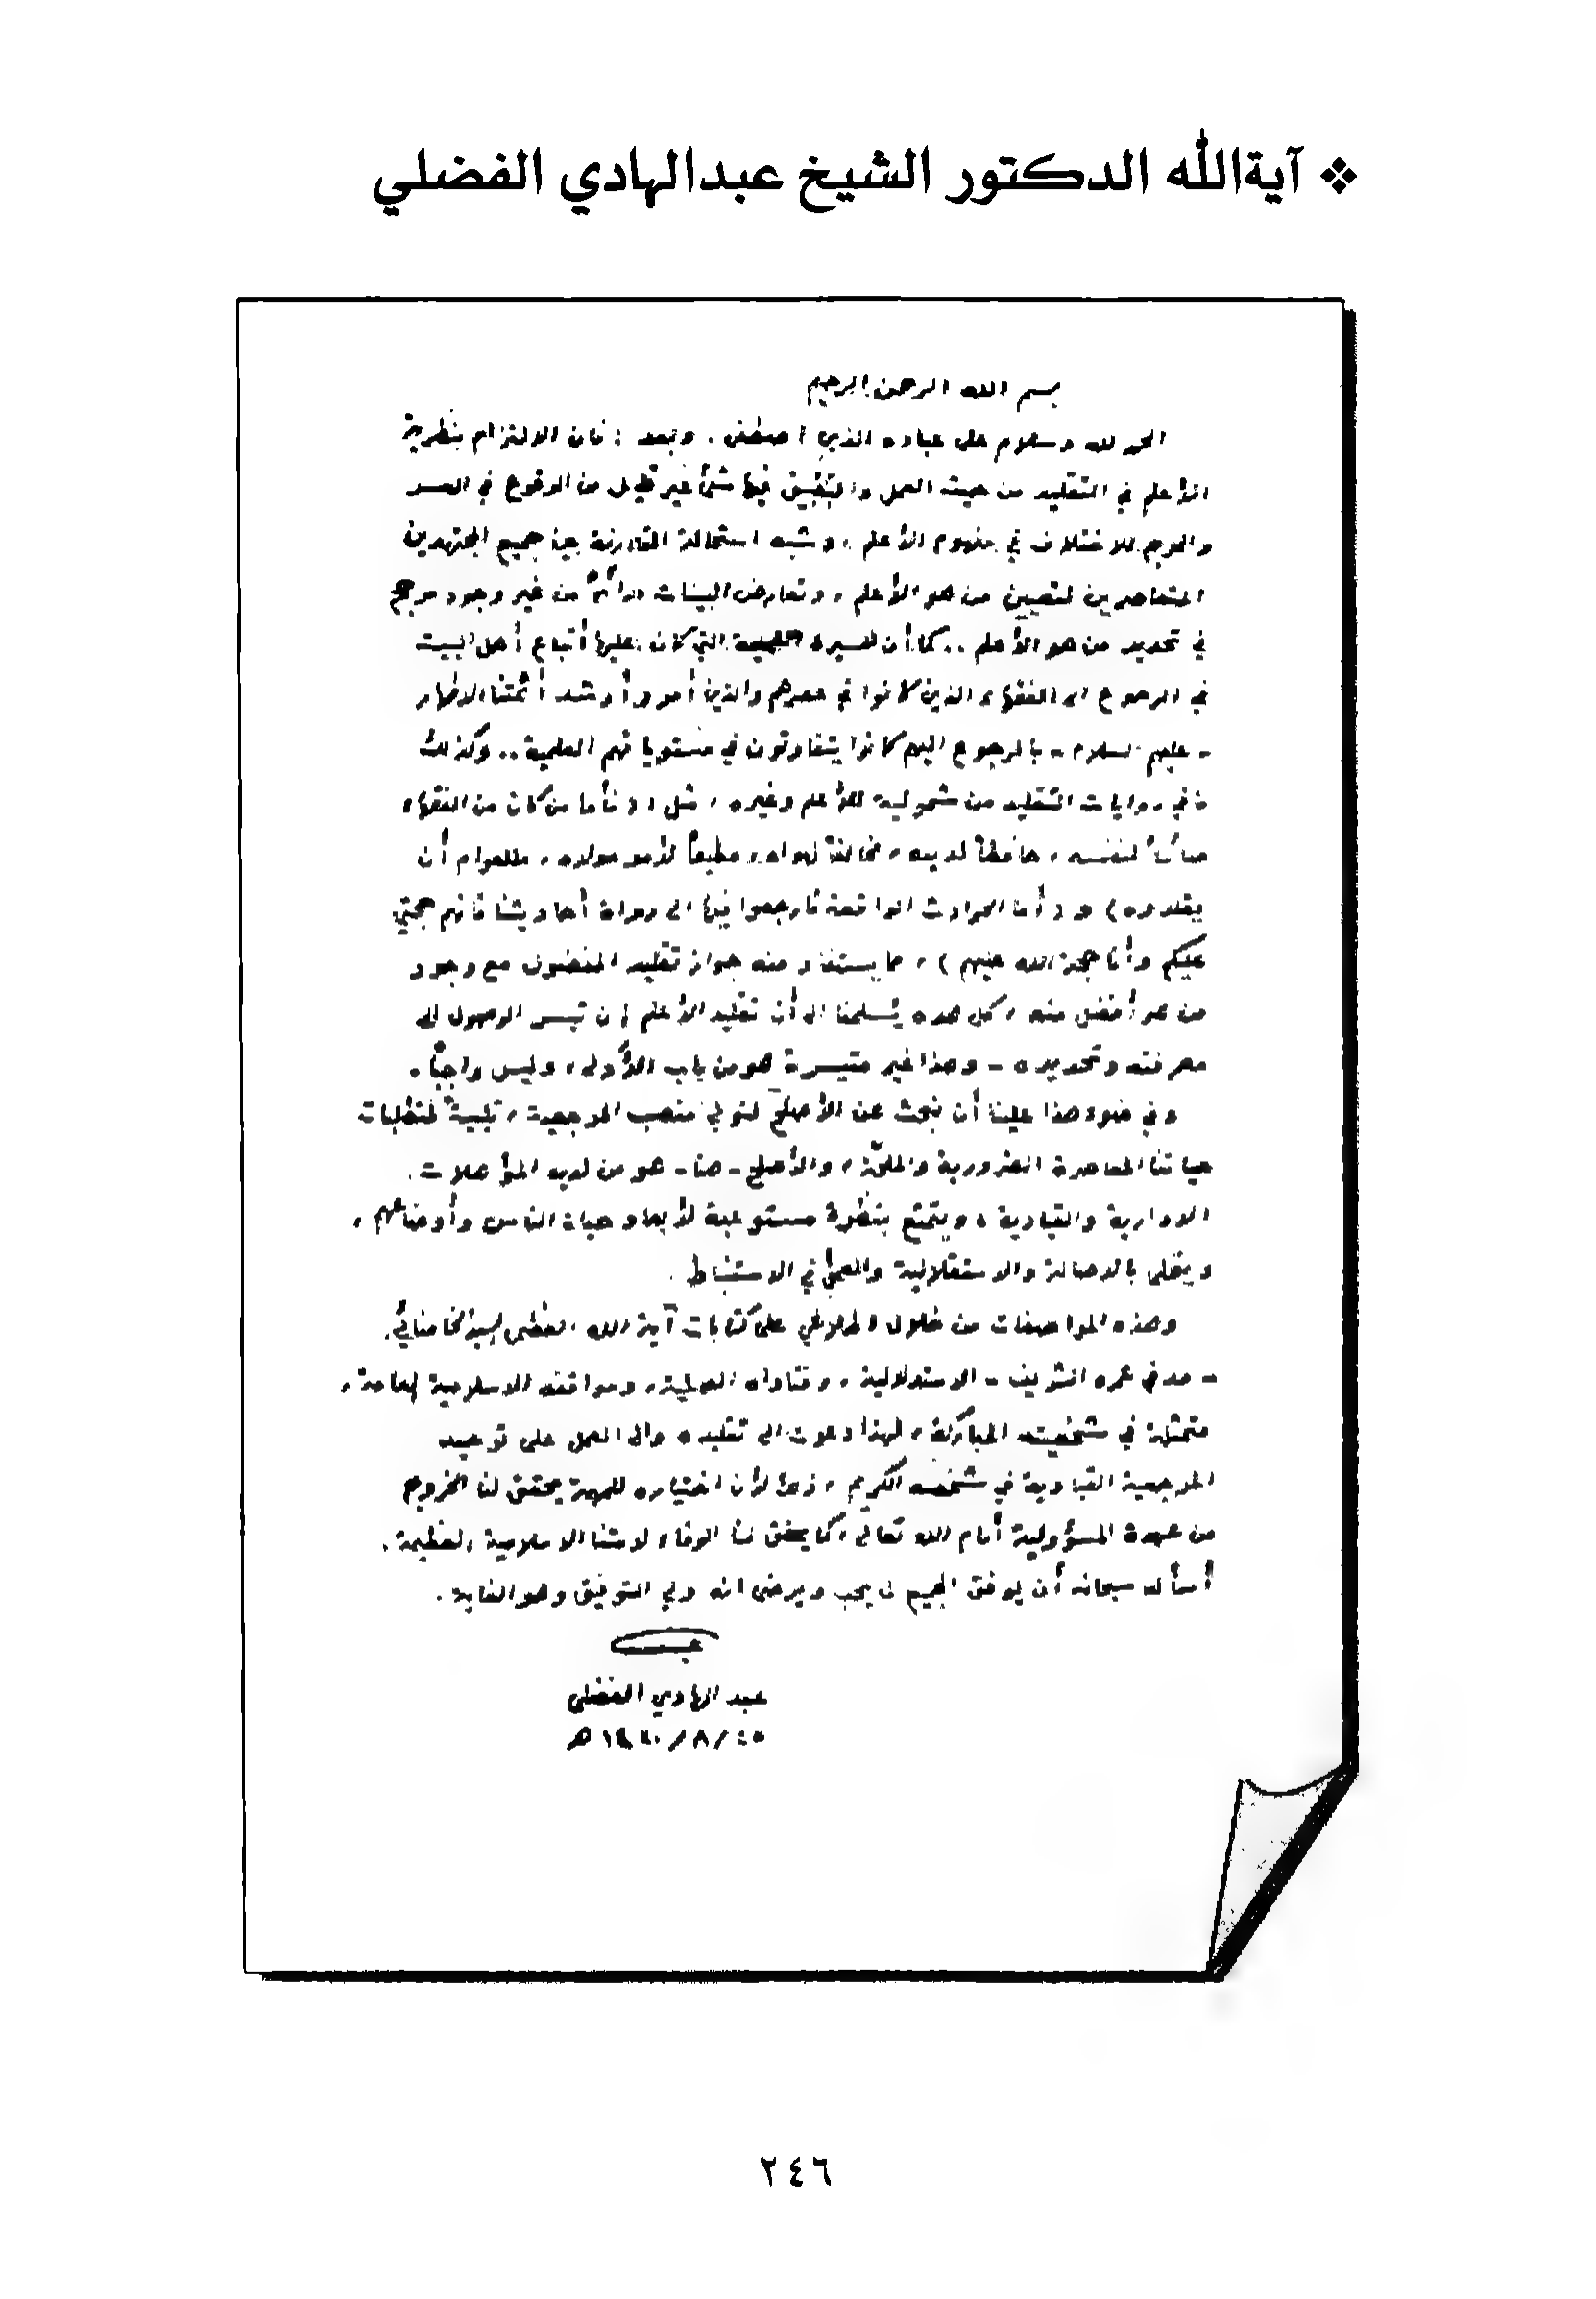 ❖ آيةالله الدكتور الشيخ عبدالهادي الفضلي
بسم الله الرحمن الرحيم
الحمد لله وسلام على عباده الذين اصطفى . وبعد : فان الالتزام بنظرية
الأعلم في التقليد من حيث العمل والتطبيق فيها شئ غير قليل من الوقوع في العسر
والحرج للاختلاف في مفهوم الأعلم ، وشبه استحالة المقارنة بين جميع المجتهدين
المتعاصرين لتعيين من هو الأعلم ، وتعارض البينات دائماً من غير وجود مرجح
في تحديد من هو الأعلم .. كما أن السيرة التي كان عليها أتباع أهل البيت
في الرجوع الى الفقهاء الذين كانوا في عصرهم والذين أمر وأرشد أئمتنا الاطهار
- عليهم السلام - بالرجوع اليهم كانوا يتفاوتون في مستوياتهم العلمية .. وكذلك
ما في روايات التقليد من شمولية للأعلم وغيره ، مثل : ( فأما من كان من الفقهاء
صائناً لنفسه ، حافظاً لدينه ، مخالفاً لهواه ، مطيعاً لأمر مولاه ، فللعوام أن
يقلدوه ) و ( أما الحوادث الواقعة فارجعوا فيها الى رواة أحاديثنا فانهم حجتي
عليكم وأنا حجة الله عليهم ) ، مما يستفاد منه جواز تقليد المفضول مع وجود
من هو أفضل منه ، كل هذه يسلمنا الى أن تقليد الأعلم إن تيسر الوصول الى
معرفته وتحديده - وهذا غير متيسر هو من باب الأولى ، وليس واجباً .
وفي ضوء هذا علينا أن نبحث عن الأصلح لتولي منصب المرجعية ، تلبية لمتطلبات
حياتنا المعاصرة الضرورية والملحّة ، والأصلح - هنا - هو من لديه المؤهلات
الادارية والقيادية ، ويتمتع بنظرة مستوعبة لأبعاد حياة الناس وأوضاعهم ،
ويتحلى بالاصالة والاستقلالية والعمق في الاستنباط .
وهذه المواصفات من خلال اطلاعي على كتابات آية الله العظمى السيد الخامنائي
- مد في عمره الشريف - الاستدلالية ، وفتاواه العملية ، ومواقفه الاسلامية العامة ،
متمثلة في شخصيته المباركة ، لهذا دعوت الى تقليده والى العمل على توحيد
المرجعية القيادية في شخصه الكريم ، ذلك لأن اختياره للمهمة يحقق لنا الخروج
من عهدة المسؤولية أمام الله تعالى ، كما يحقق لنا الوفاء لامتنا الاسلامية العظيمة .
أسأله سبحانه أن يوفق الجميع لما يحب ويرضى انه ولي التوفيق وهو الغاية .
عبد الهادي الفضلي
٢٤٦